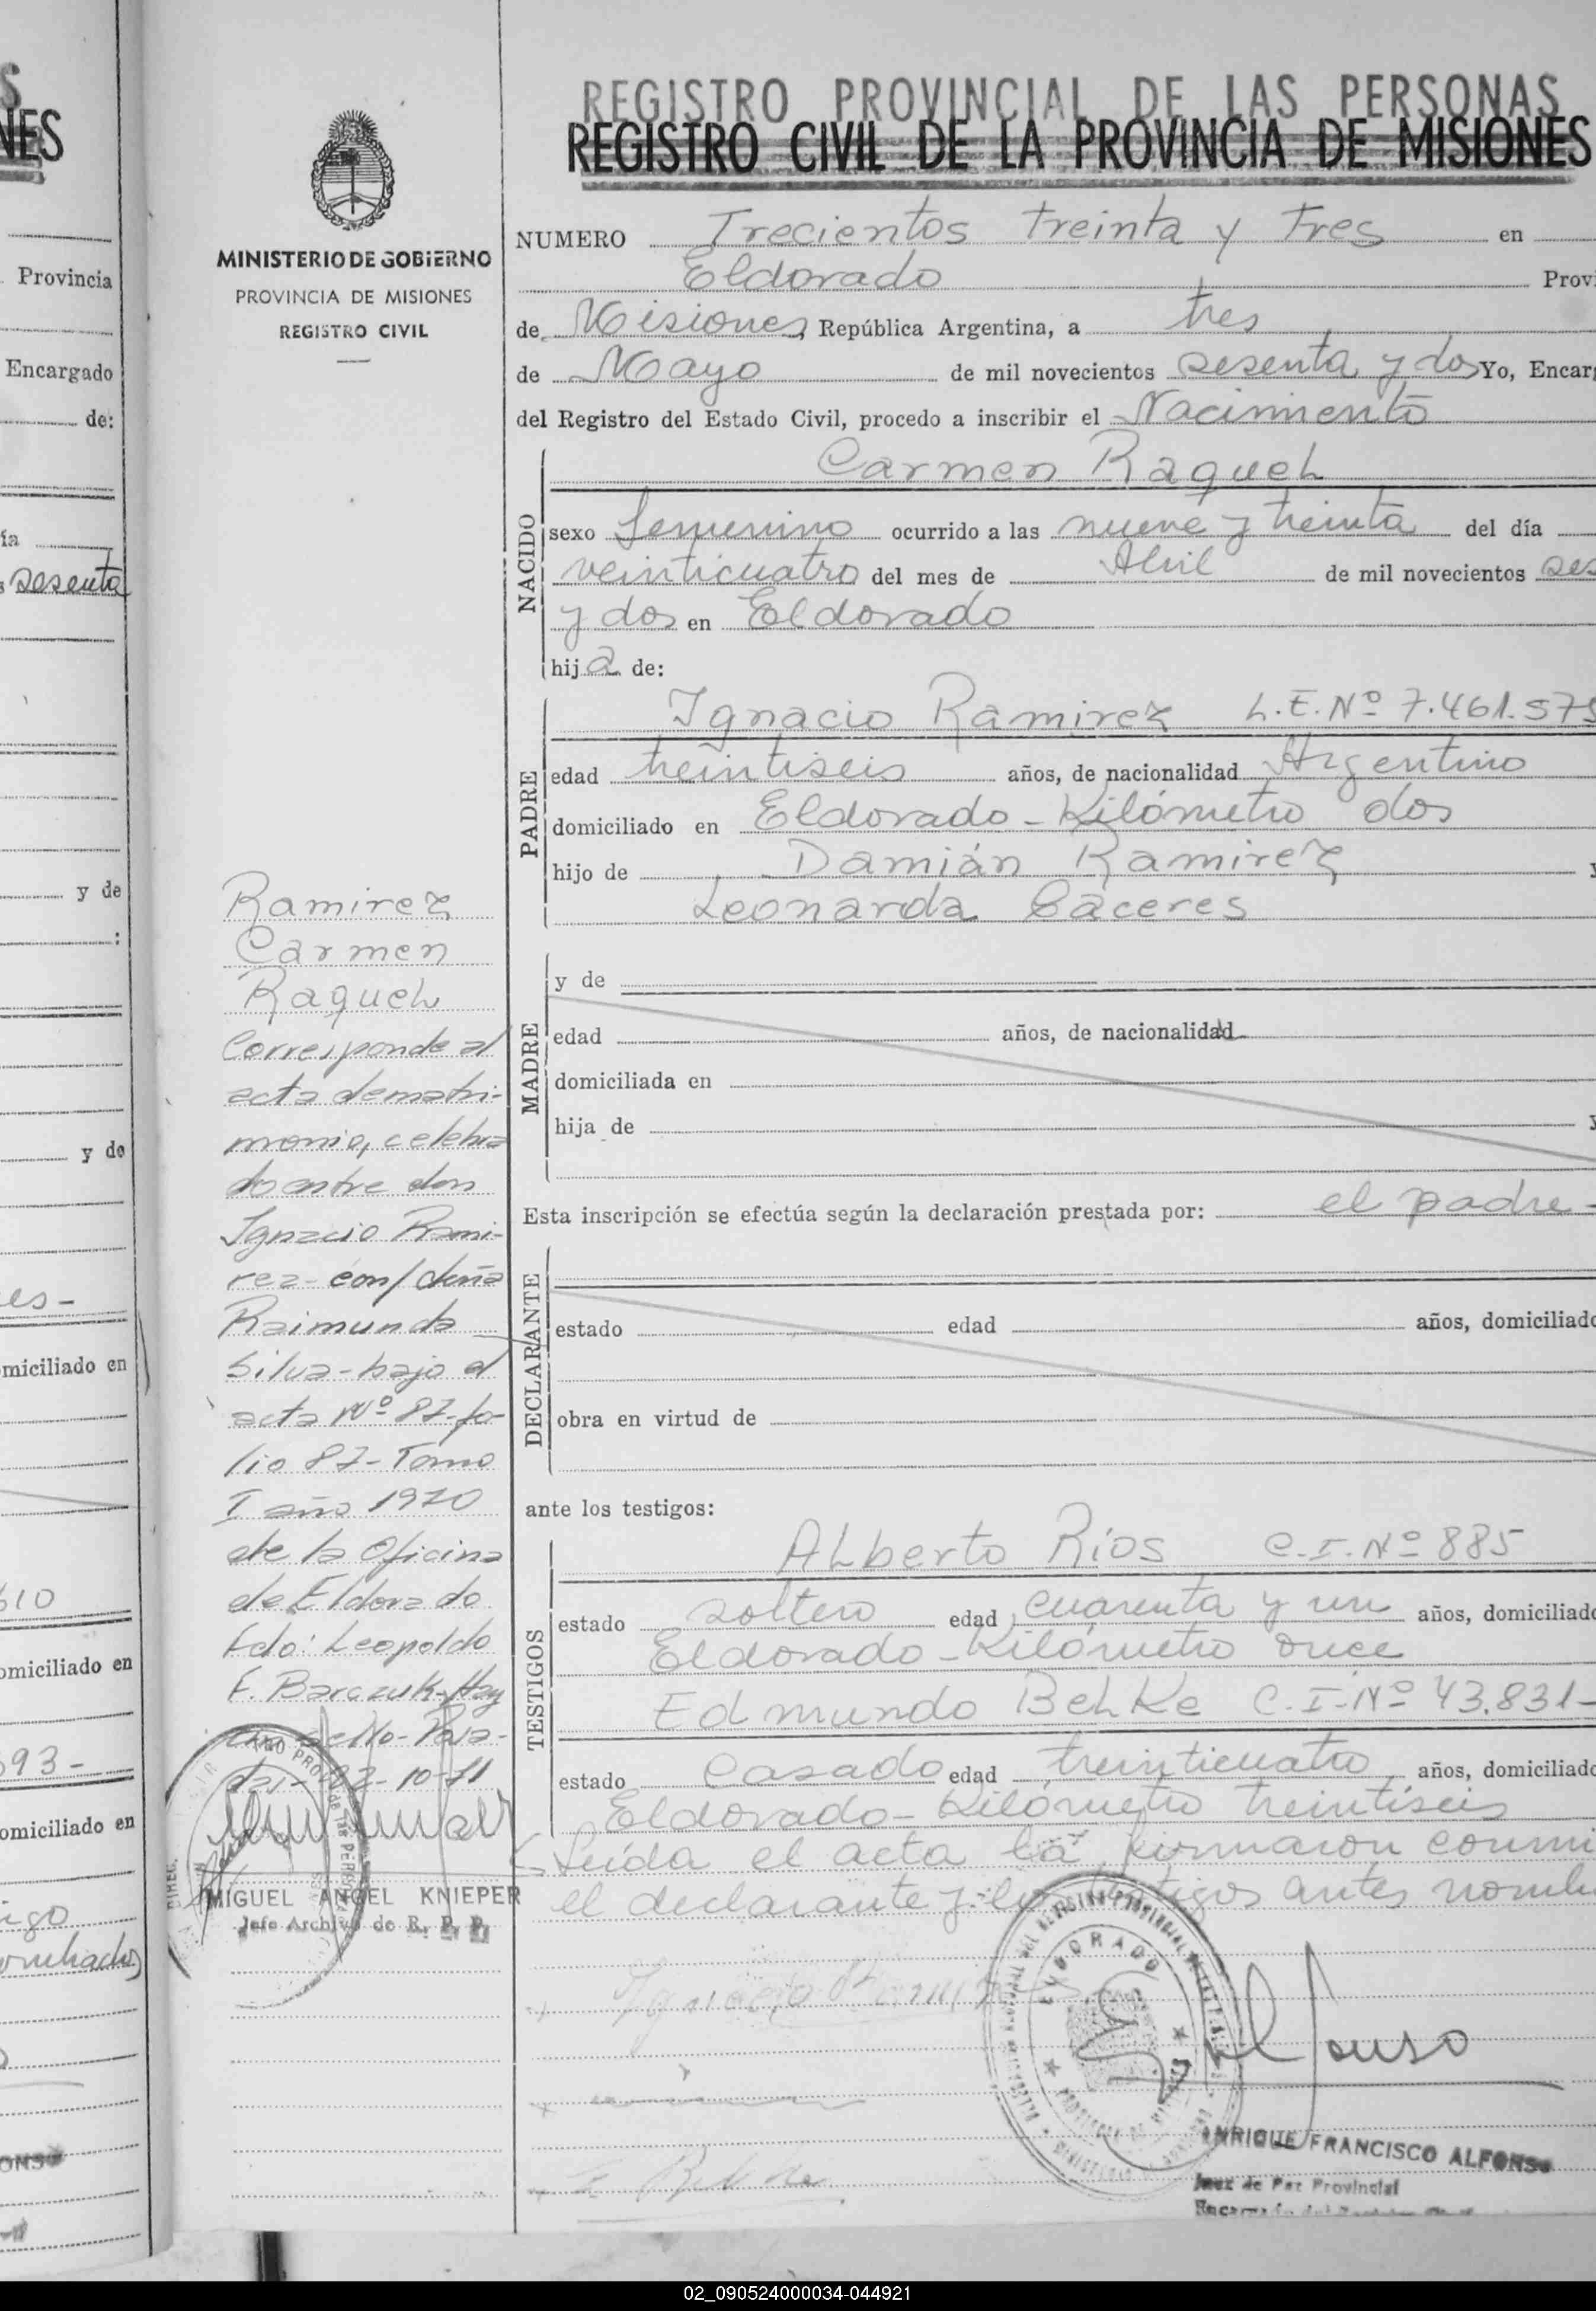 S
NES
Provincia
Encargado
de:
ía
s sesenta
y de
:
y de
es-
miciliado en
610
omiciliado en
693-
omiciliado en
igo
ombrados
ONSO
MINISTERIO DE GOBIERNO
PROVINCIA DE MISIONES
REGISTRO CIVIL
Ramirez
Carmen
Raquel
Corresponde al
acta de matri-
monio, celebra
do entre don
Ignacio Rami-
rez- con/doña
Raimunda
Silva-bajo el
acta Nº 87-fo-
lio 87-Tomo
I año 1970
de la Oficina
de Eldorado
Fdo: Leopoldo
F. Barczuk-Hay
un sello-Posa-
das-02-10-71
MIGUEL ANGEL KNIEPER
Jefe Archivo de R. P. P.
REGISTRO PROVINCIAL DE LAS PERSONAS
REGISTRO CIVIL DE LA PROVINCIA DE MISIONES
NUMERO Trecientos treinta y tres en
Eldorado Prov
de Misiones, República Argentina, a tres
de Mayo de mil novecientos sesenta y dos Yo, Encar
del Registro del Estado Civil, procedo a inscribir el Nacimiento
NACIDO
Carmen Raquel
sexo femenino ocurrido a las nueve y treinta del día
veinticuatro del mes de Abril de mil novecientos ses
y dos en Eldorado
hija de:
PADRE
Ignacio Ramirez L.E.Nº 7.461.575
edad treintiseis años, de nacionalidad Argentino
domiciliado en Eldorado-Kilómetro dos
hijo de Damián Ramirez y
Leonarda Cáceres
MADRE
y de
edad años, de nacionalidad
domiciliada en
hija de y
Esta inscripción se efectúa según la declaración prestada por: el padre-
DECLARANTE
estado edad años, domiciliado
obra en virtud de
ante los testigos:
TESTIGOS
Alberto Rios C.I.Nº 885
estado soltero edad cuarenta y un años, domiciliado
Eldorado-Kilómetro once
Edmundo Behlke C.I-Nº 43.831-
estado casado edad treinticuatro años, domiciliado
Eldorado-Kilómetro treintiseis
Leída el acta la firmaron conmi
el declarante y los testigos antes nomb
Ignacio Ramirez
Alfonso
ELDORADO
ENRIQUE FRANCISCO ALFONSO
Juez de Paz Provincial
02_090524000034-044921